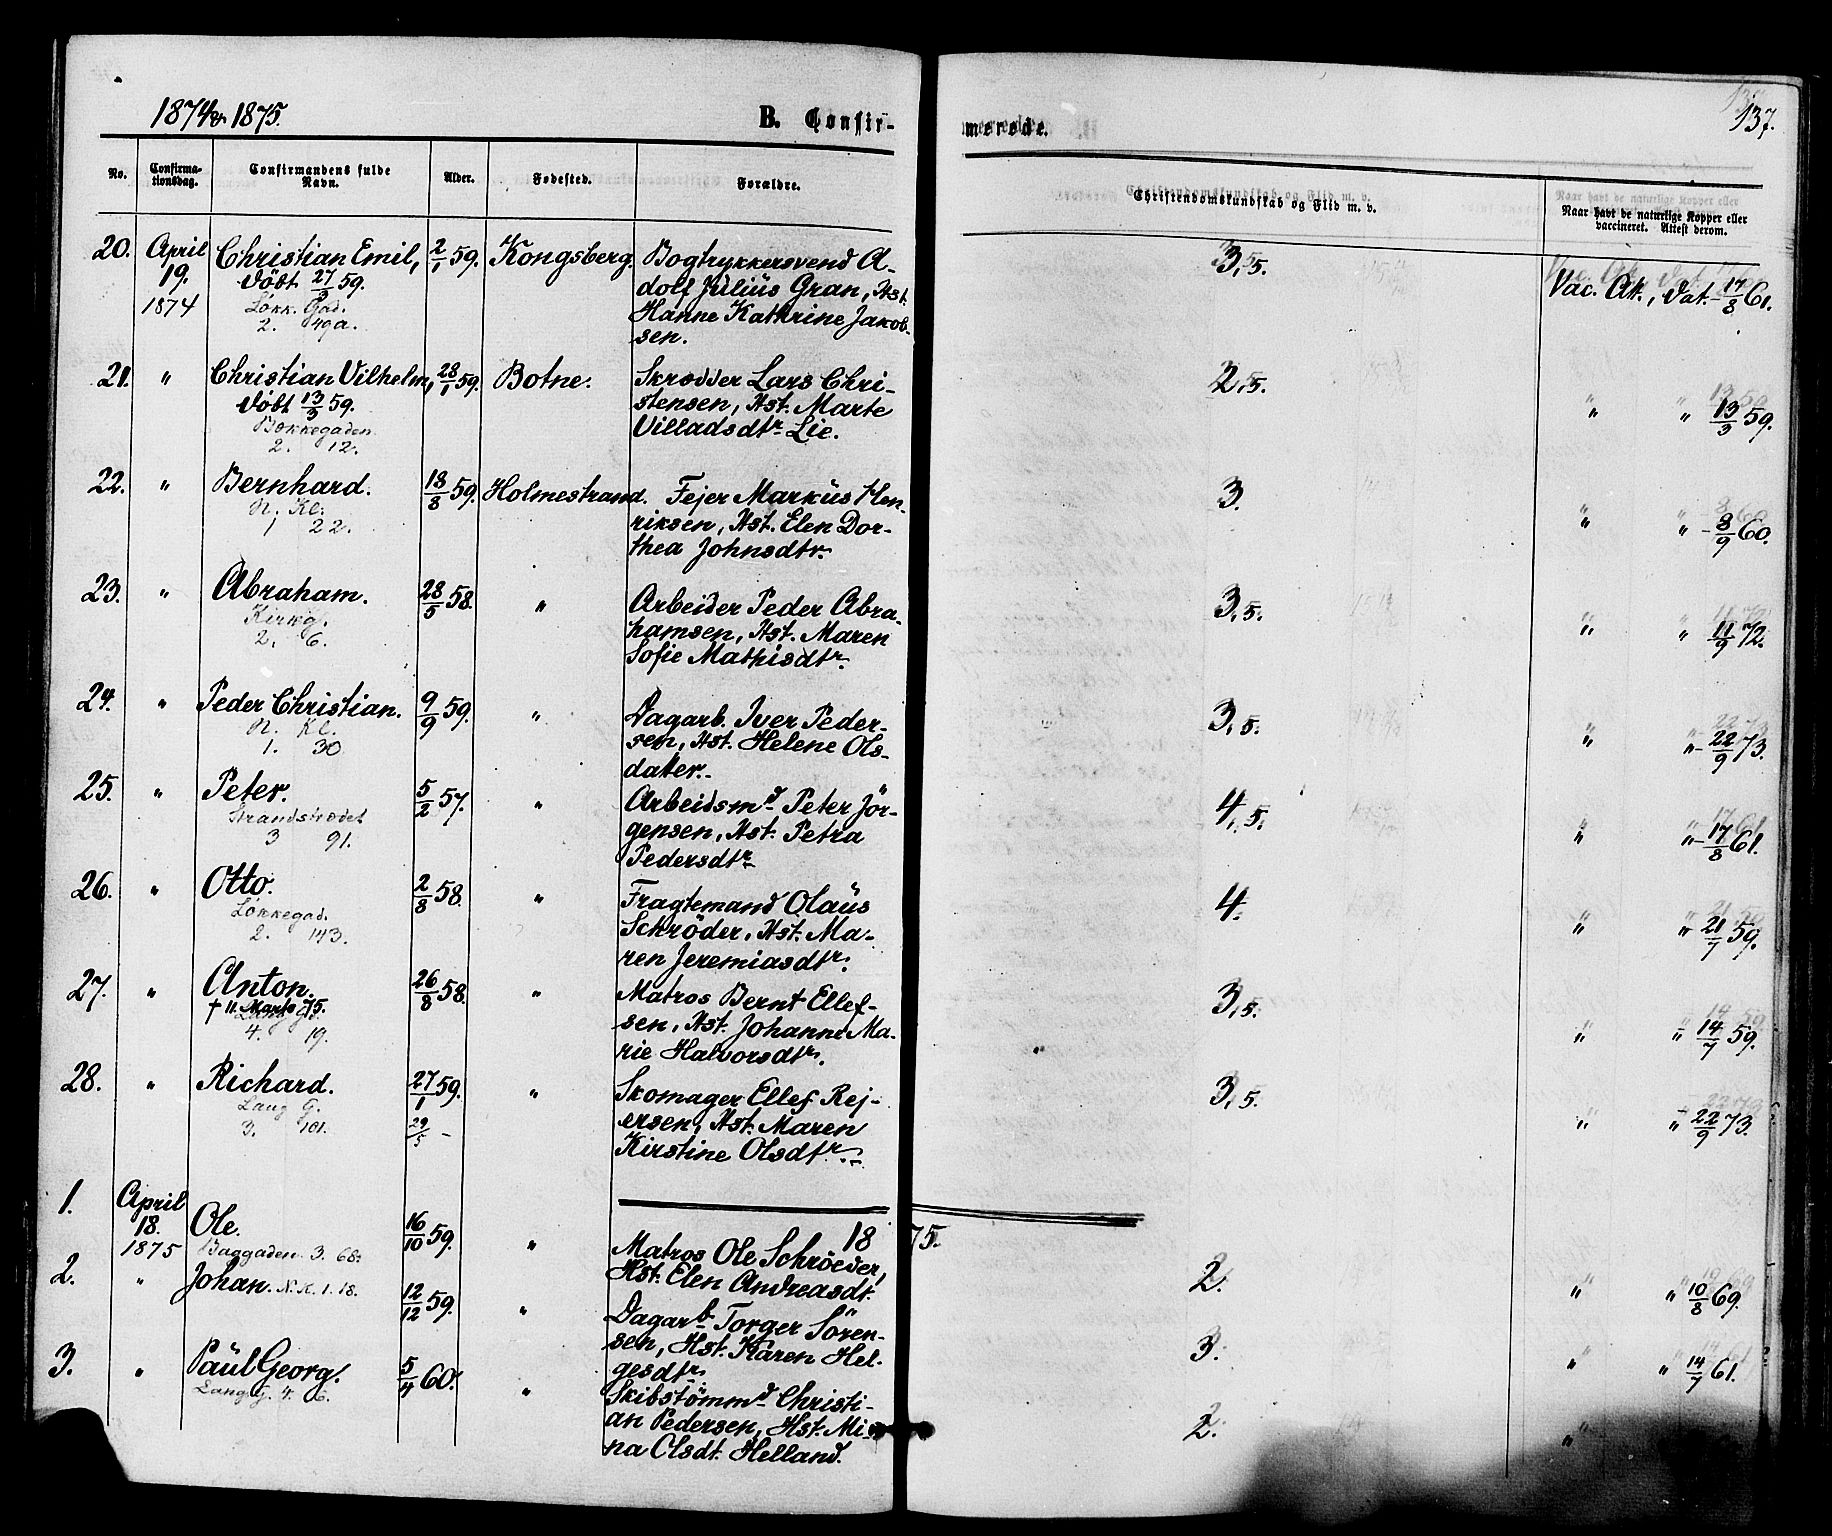 1874 & 1875.
B. Confir-
merede.
137.
No.
Confirma-
tionsdag.
Confirmandens fulde
Navn.
Alder.
Fødested.
Forældre.
Christendomskundskab og Flid m. v.
Naar havt de naturlige Kopper eller
vaccineret. Attest derom.
20. April Christian Emil, 2/1 59. Kongsberg. Bogtrykkersvend A- 3,5. Vac. At., Dat. 17/8 61.
19. Döbt 27/3 59. dolf Julius Gran, Hst.
1874 Løkk. Gad. Hanne Kathrine Jakob-
2. 49a. sen.
21. " Christian Vilhelm, 28/1 59. Botne. Skrædder Lars Chri- 2,5. " " 13/3 59.
Döbt 13/3 59. stensen, Hst. Marte
Bakkegaden Villadsdtr. Lie.
2. 12.
22. " Bernhard. 18/8 59. Holmestrand. Fejer Markus Hen- 3. " " - 8/9 60.
N. Kl. riksen, Hst. Elen Dor-
1 22. thea Johnsdtr.
23. " Abraham. 28/5 58. " Arbeider Peder Abra- 3,5. " " 11/9 72.
Kirkg. hamsen, Hst. Maren
2. 6. Sofie Mathisdtr.
24. " Peder Christian. 9/9 59. " Dagarb. Iver Peder- 3,5. " " - 22/9 73.
N. Kl. sen, Hst. Helene Ols-
1. 30 dater.
25. " Peter. 5/2 57. " Arbeidsmd. Peter Jör- 4,5. " " - 17/8 61.
Strandstrædet gensen, Hst. Petra
3 91. Pedersdtr.
26. " Otto. 2/8 58. " Fragtemand Olaüs 4. " " 21/7 59.
Løkkegad. Schröder, Hst. Ma-
2. 143. ren Jeremiasdtr.
27. " Anton. 26/8 58. " Matros Bernt Ellef- 3,5. " " 14/7 59.
† 11. Marts 75. sen, Hst. Johanne Ma-
4. 19. rie Halvorsdtr.
28. " Richard. 27/1 59. " Skomager Ellef Rej- 3,5. " " 22/9 73.
Lang G. 29/5 - ersen, Hst. Maren
3. 101. Kirstine Olsdtr.
1875.
1. April Ole. 16/10 59. " Matros Ole Schröeder, 2. " " 10/8 69.
18. Hst. Elen Andreasdt.
1875 Baggaden 3. 68.
2. " Johan. N. K. 1. 18. 12/12 59. " Dagarb. Torger Sören- 3. " " 14/7 61.
sen, Hst. Karen Hel-
gesdtr.
3. " Paül Georg. 5/4 60. " Skibstömmd. Christi- 2. "
Lang G. 4. 6. an Pedersen, Hst. Mi-
na Olsdt. Helland.